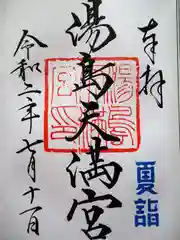 奉拝
湯島天満宮
令和二年七月十一日
夏詣